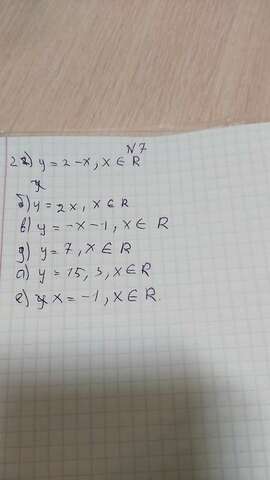 N7
2а) y = 2 - x, x ∈ R
б) y = 2x, x ∈ R
в) y = -x - 1, x ∈ R
g) y = 7, x ∈ R
а) y = 15, 3, x ∈ R
е) x = -1, x ∈ R.